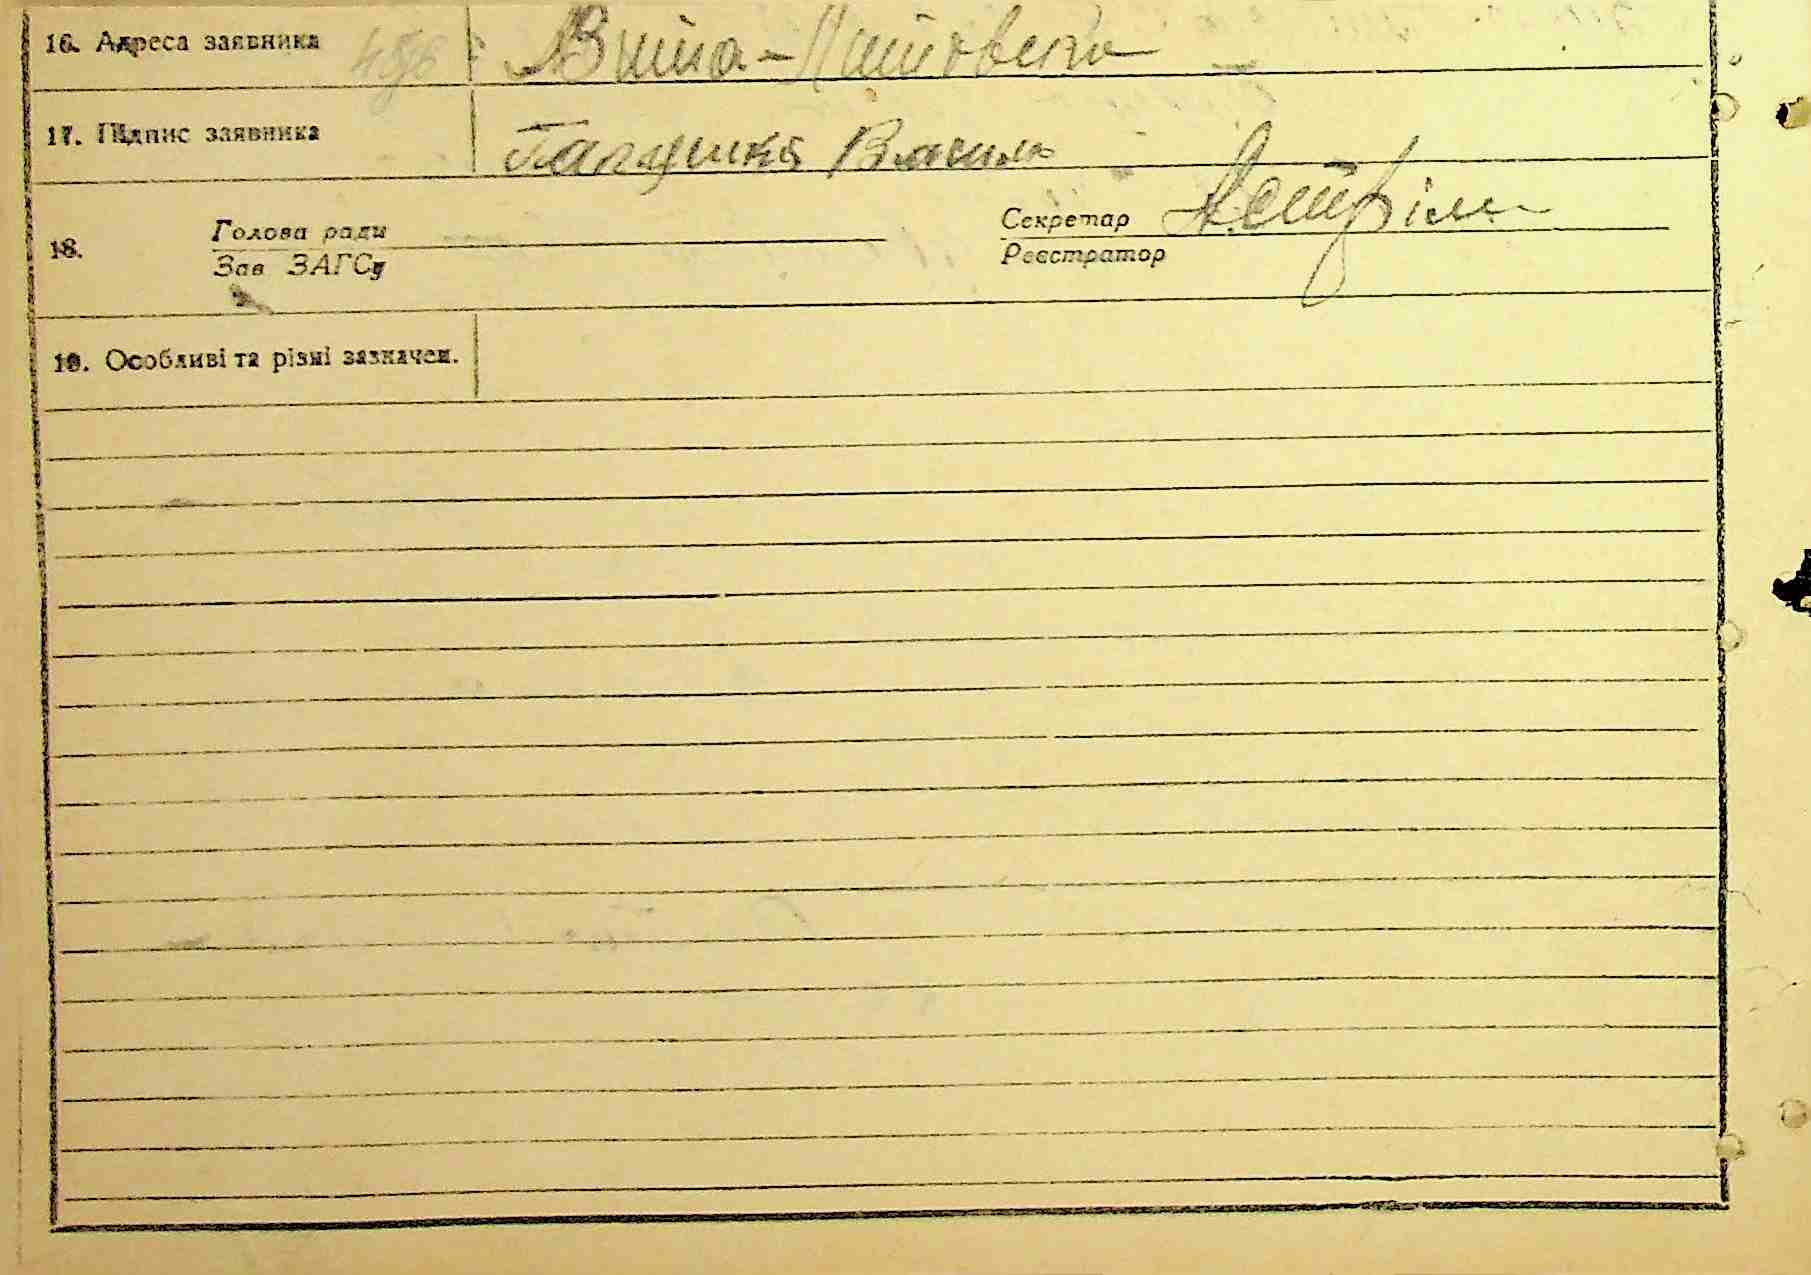 16. Адреса заявника Вита-Литовська
17. Підпис заявника Галушка Василь
Голова ради Секретар
18.
Зав ЗАГСу Реєстратор
19. Особливі та різні зазначен.